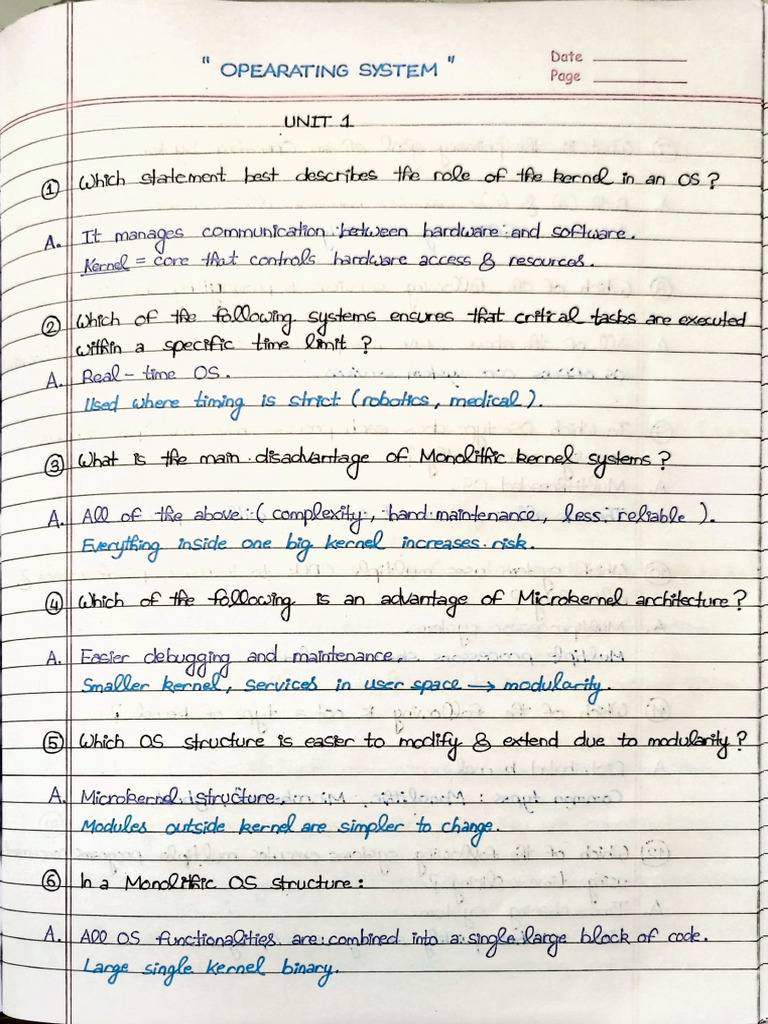 " OPEARATING SYSTEM "
Date
Page
UNIT 1
① Which statement best describes the role of the kernel in an OS ?
A. It manages communication between hardware and software.
Kernel = core that controls hardware access & resources.
② Which of the following systems ensures that critical tasks are executed
within a specific time limit ?
A. Real-time OS.
Used where timing is strict (robotics, medical).
③ What is the main disadvantage of Monolithic kernel systems ?
A. All of the above (complexity, hard maintenance, less reliable).
Everything inside one big kernel increases risk.
④ Which of the following is an advantage of Microkernel architecture ?
A. Easier debugging and maintenance.
Smaller kernel, services in user space → modularity.
⑤ Which OS structure is easier to modify & extend due to modularity ?
A. Microkernel structure.
Modules outside kernel are simpler to change.
⑥ In a Monolithic OS structure :
A. All OS functionalities are combined into a single large block of code.
Large single kernel binary.